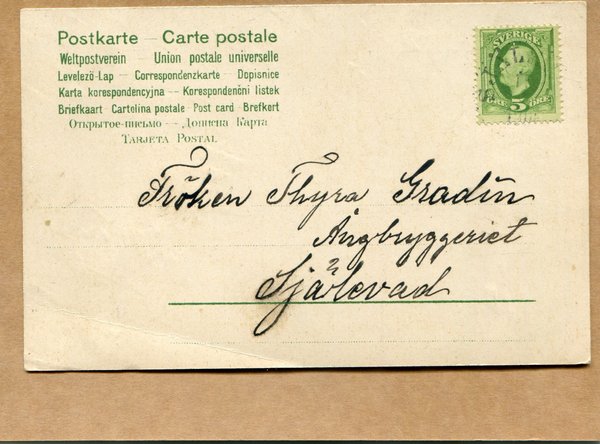 Postkarte — Carte postale
Weltpostverein — Union postale universelle
Levelező-Lap — Correspondenzkarte — Dopisnice
Karta korespondencyjna — Korespondenční listek
Briefkaart — Cartelina postale — Post card — Brefkert
Открытое-письмо — Дописна Карта
Tarjeta Postal
SVERIGE
5
ÖRE ÖRE
Fröken Thyra Gradin
Ångbryggeriet
Själevad